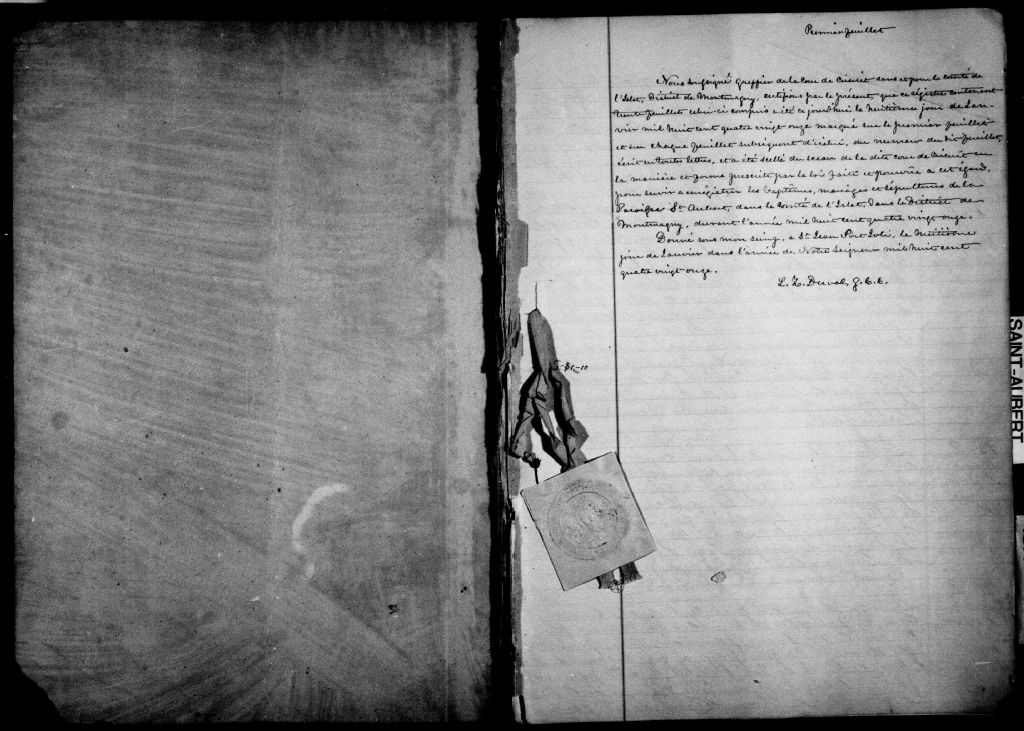 Premier feuillet
Nous soussigné Greffier de la Cour de Circuit dans et pour le comté de
l'Islet, District de Montmagny, certifions par le présent, que ce régistre contenant
trente feuillets celui-ci compris a été ce jourd'hui le huitième jour de Jan-
vier mil huit cent quatre vingt onze marqué sur le premier feuillet
et sur chaque feuillet subséquent d'icelui, du numéro du dit feuillet,
écrit en toutes lettres, et a été scellé du sceau de la dite cour de Circuit en
la manière et forme prescrite par la loi faite et pourvue à cet égard,
pour servir à enrégistrer les Baptêmes, mariages et sépultures de la
Paroisse St Aubert, dans le Comté de l'Islet, dans le District de
Montmagny, durant l'année mil huit cent quatre vingt onze.
Donné sous mon seing, à St Jean Port Joli, le huitième
jour de Janvier dans l'année de Notre Seigneur mil huit cent
quatre vingt onze.
L. Z. Duval, g. C. C.
SAINT-AUBERT